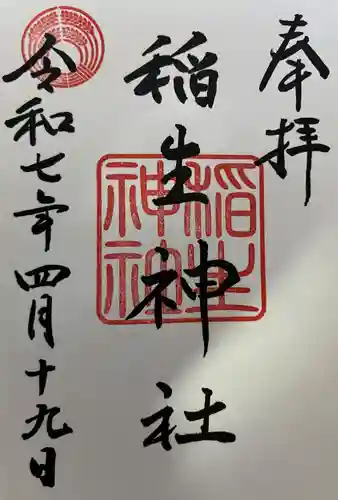 奉拝
稲生神社
稲生神社
令和七年四月十九日